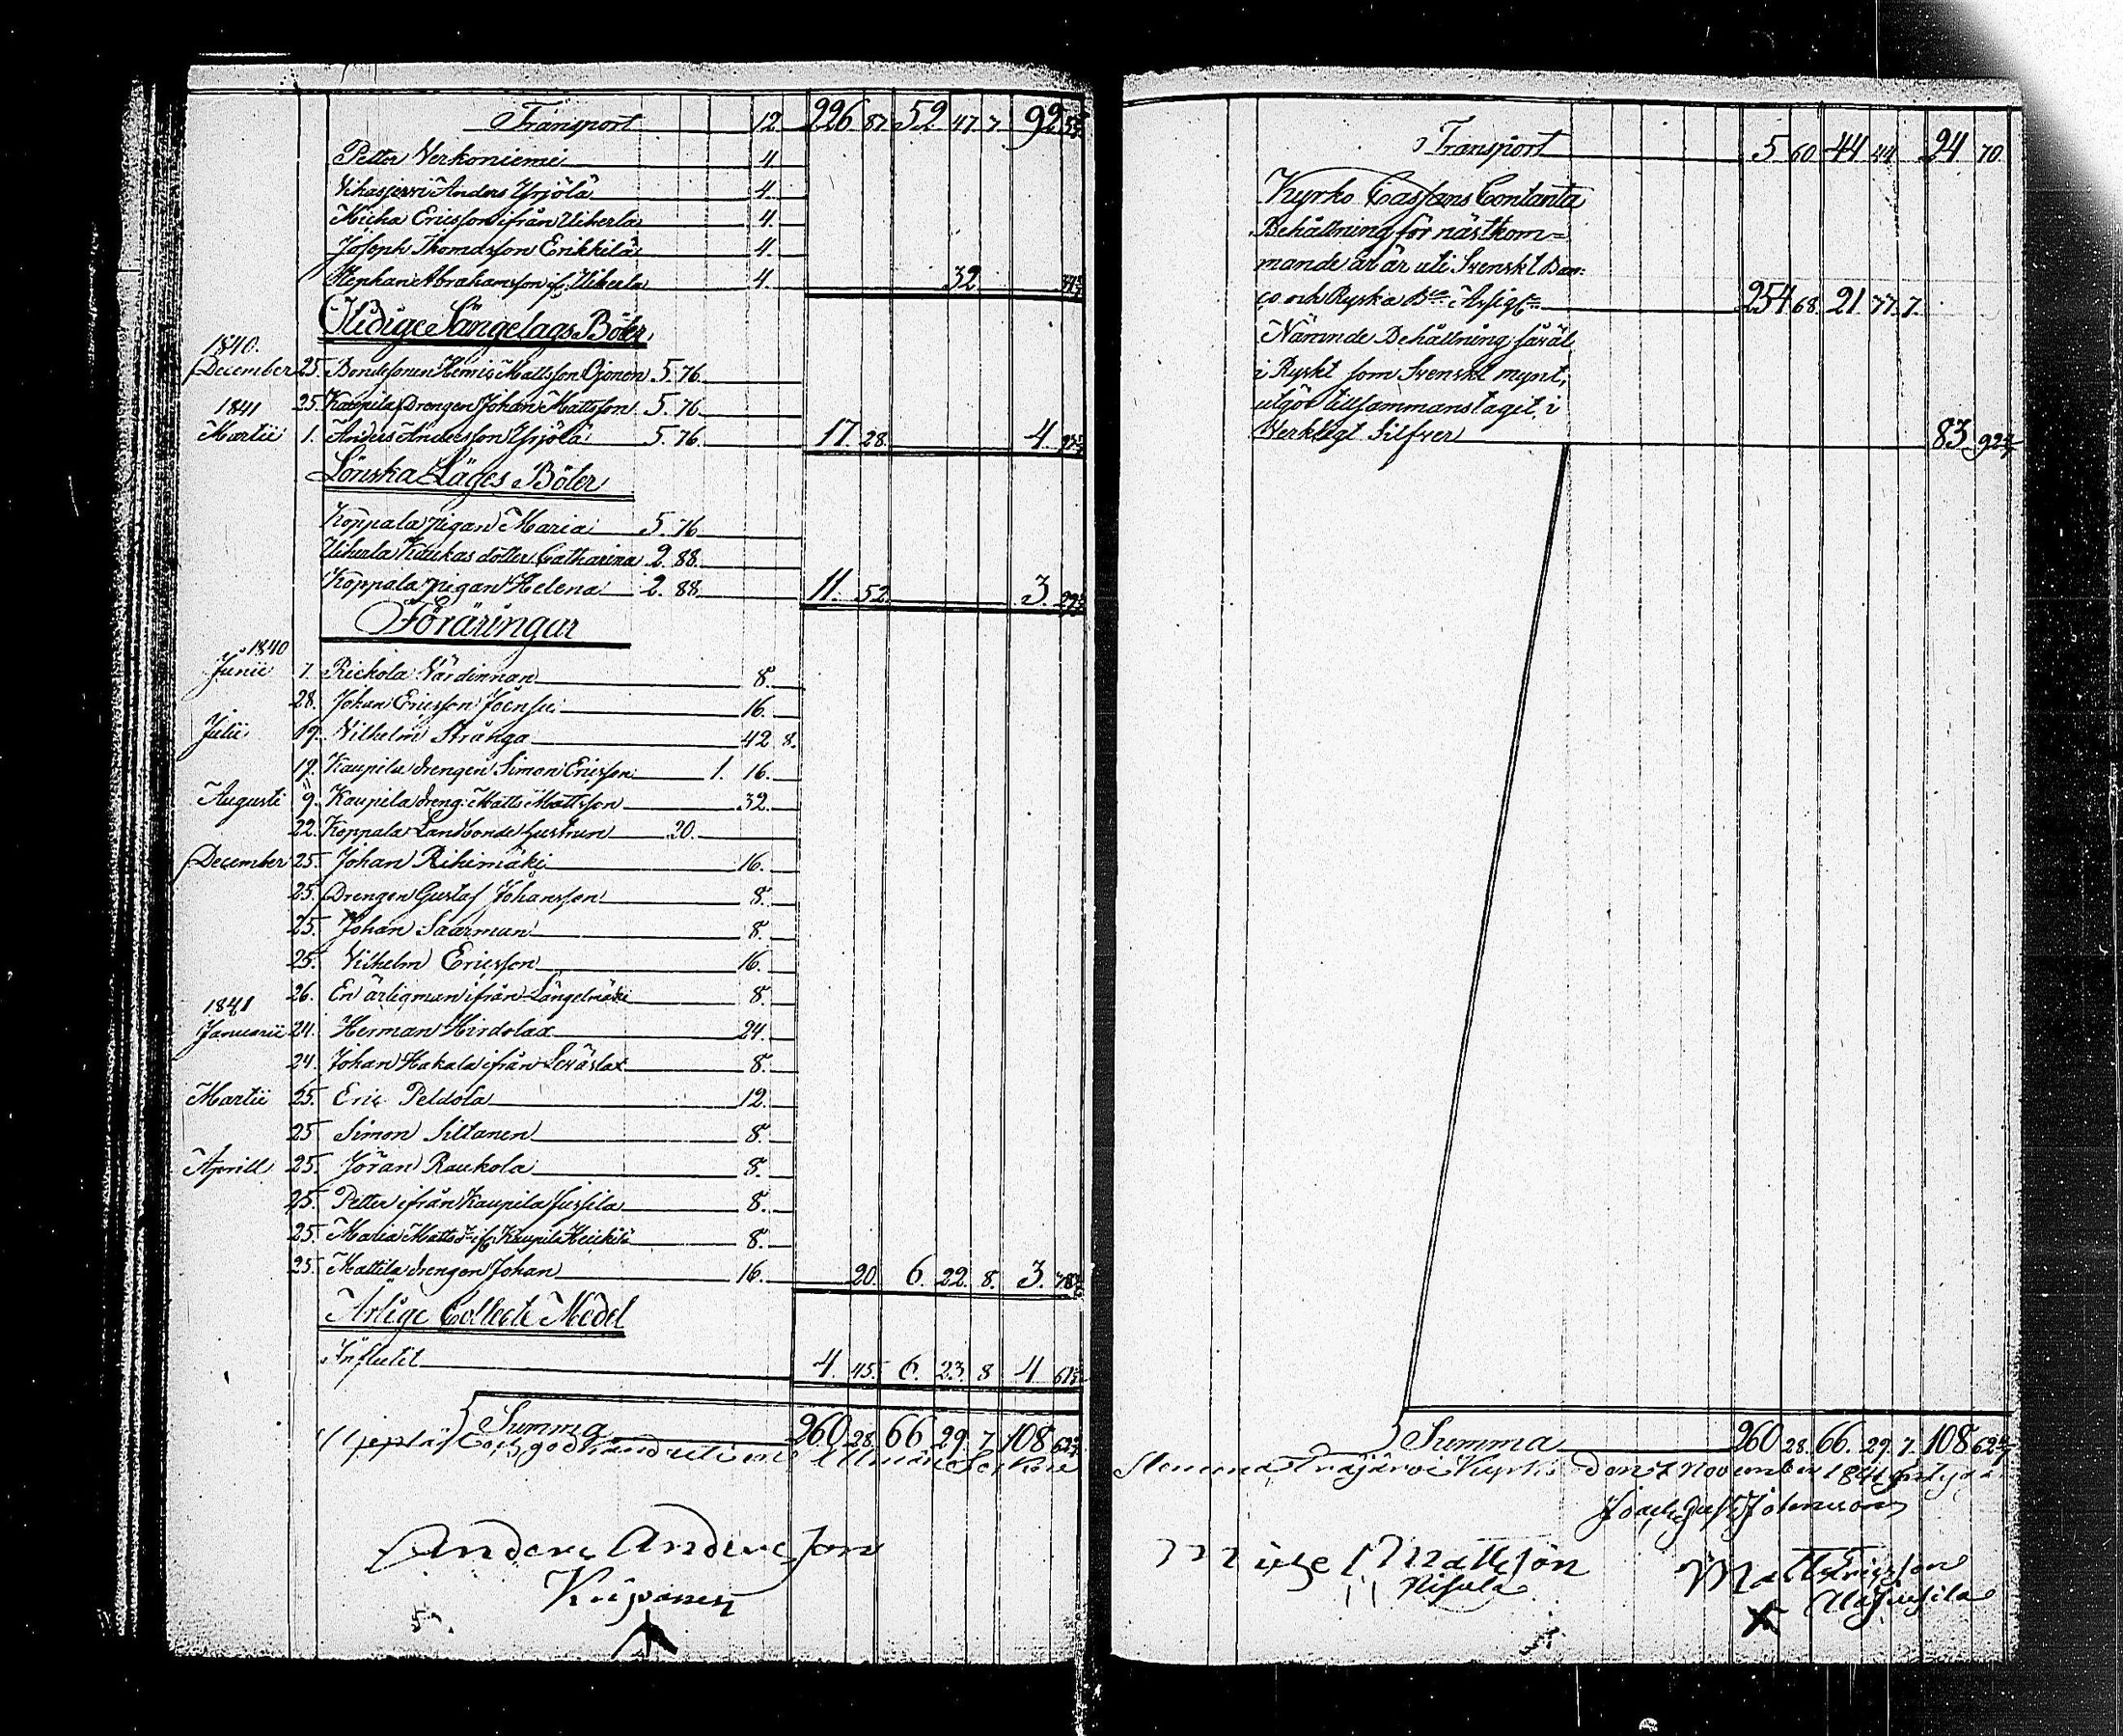 Transport 12. 226. 87. 52. 47. 7. 92.
Petter Verkoniemi 4.
Vihasjervi Anders Yrjölä 4.
Micha Ericsson ifrån Uiherla 4.
Joseph Thomasson Erikkilä 4.
Stephan Abrahamsson if. Uiherla 4. 32.
Otidige Sängelags Böter
1840.
December 25. Bondesonen Henric Mattsson Ojonen 5. 76.
25. Kaupila Drengen Johan Mattsson 5. 76.
1841
Martii 1. Anders Andersson Yrjölä 5. 76. 17. 28. 4.
Lönska Läges Böter
Koppala pigan Maria 5. 76.
Uiherla Kaukas dotter Catharina 2. 88.
Koppala pigan Helena 2. 88. 11. 52. 3.
Föräringar
1840
Junii 7. Rickola Värdinnan 8.
28. Johan Ericsson Joensu 16.
Julii 19. Vilhelm Strånga 42. 8.
19. Kaupila drengen Simon Ericsson 1. 16.
Augusti 9. Kaupila dreng. Matts Mattsson 32.
22. Koppala Landbonde hustrun 20.
December 25. Johan Rihimäki 16.
25. Drengen Gustaf Johansson 8.
25. Johan Saarman 8.
25. Vilhelm Ericsson 16.
26. En ärligman ifrån Längelmäki 8.
1841
Januarii 24. Herman Hirdolax 24.
24. Johan Hakala ifrån Leväslax 8.
Martii 25. Eric Peldola 12.
25. Simon Siltanen 8.
Aprill 25. Jöran Raukola 8.
25. Petter ifrån Kaupila Jussila 8.
25. Maria Mattsdr if. Kaupila Heickilä 8.
25. Mattila drengen Johan 16. 20. 6. 22. 8. 3.
Årlige Collecte Medel
Influtit 4. 45. 6. 23. 8. 4.
Summa 260. 28. 66. 29. 7. 108.
och godkänd uti en Allmän
Anders Andersson
Kupanen
Transport 5. 60. 44. 44. 24. 70.
Kyrko Cassans Contanta
Behållning för nästkom=
mande år är uti Svenskt Ban=
co och Ryska Bco Assigne 254. 68. 21. 77. 7.
Nämnde Behållning, såväl
i Ryskt som Svenskt mynt,
utgör tillsammanstaget, i
Verkligt Silfver 83.
Summa 260. 28. 66. 29. 7. 108.
Stemma Kyrka den 7 November 1841
Mattson
Nisula
Matts Ericsson
Alajusila